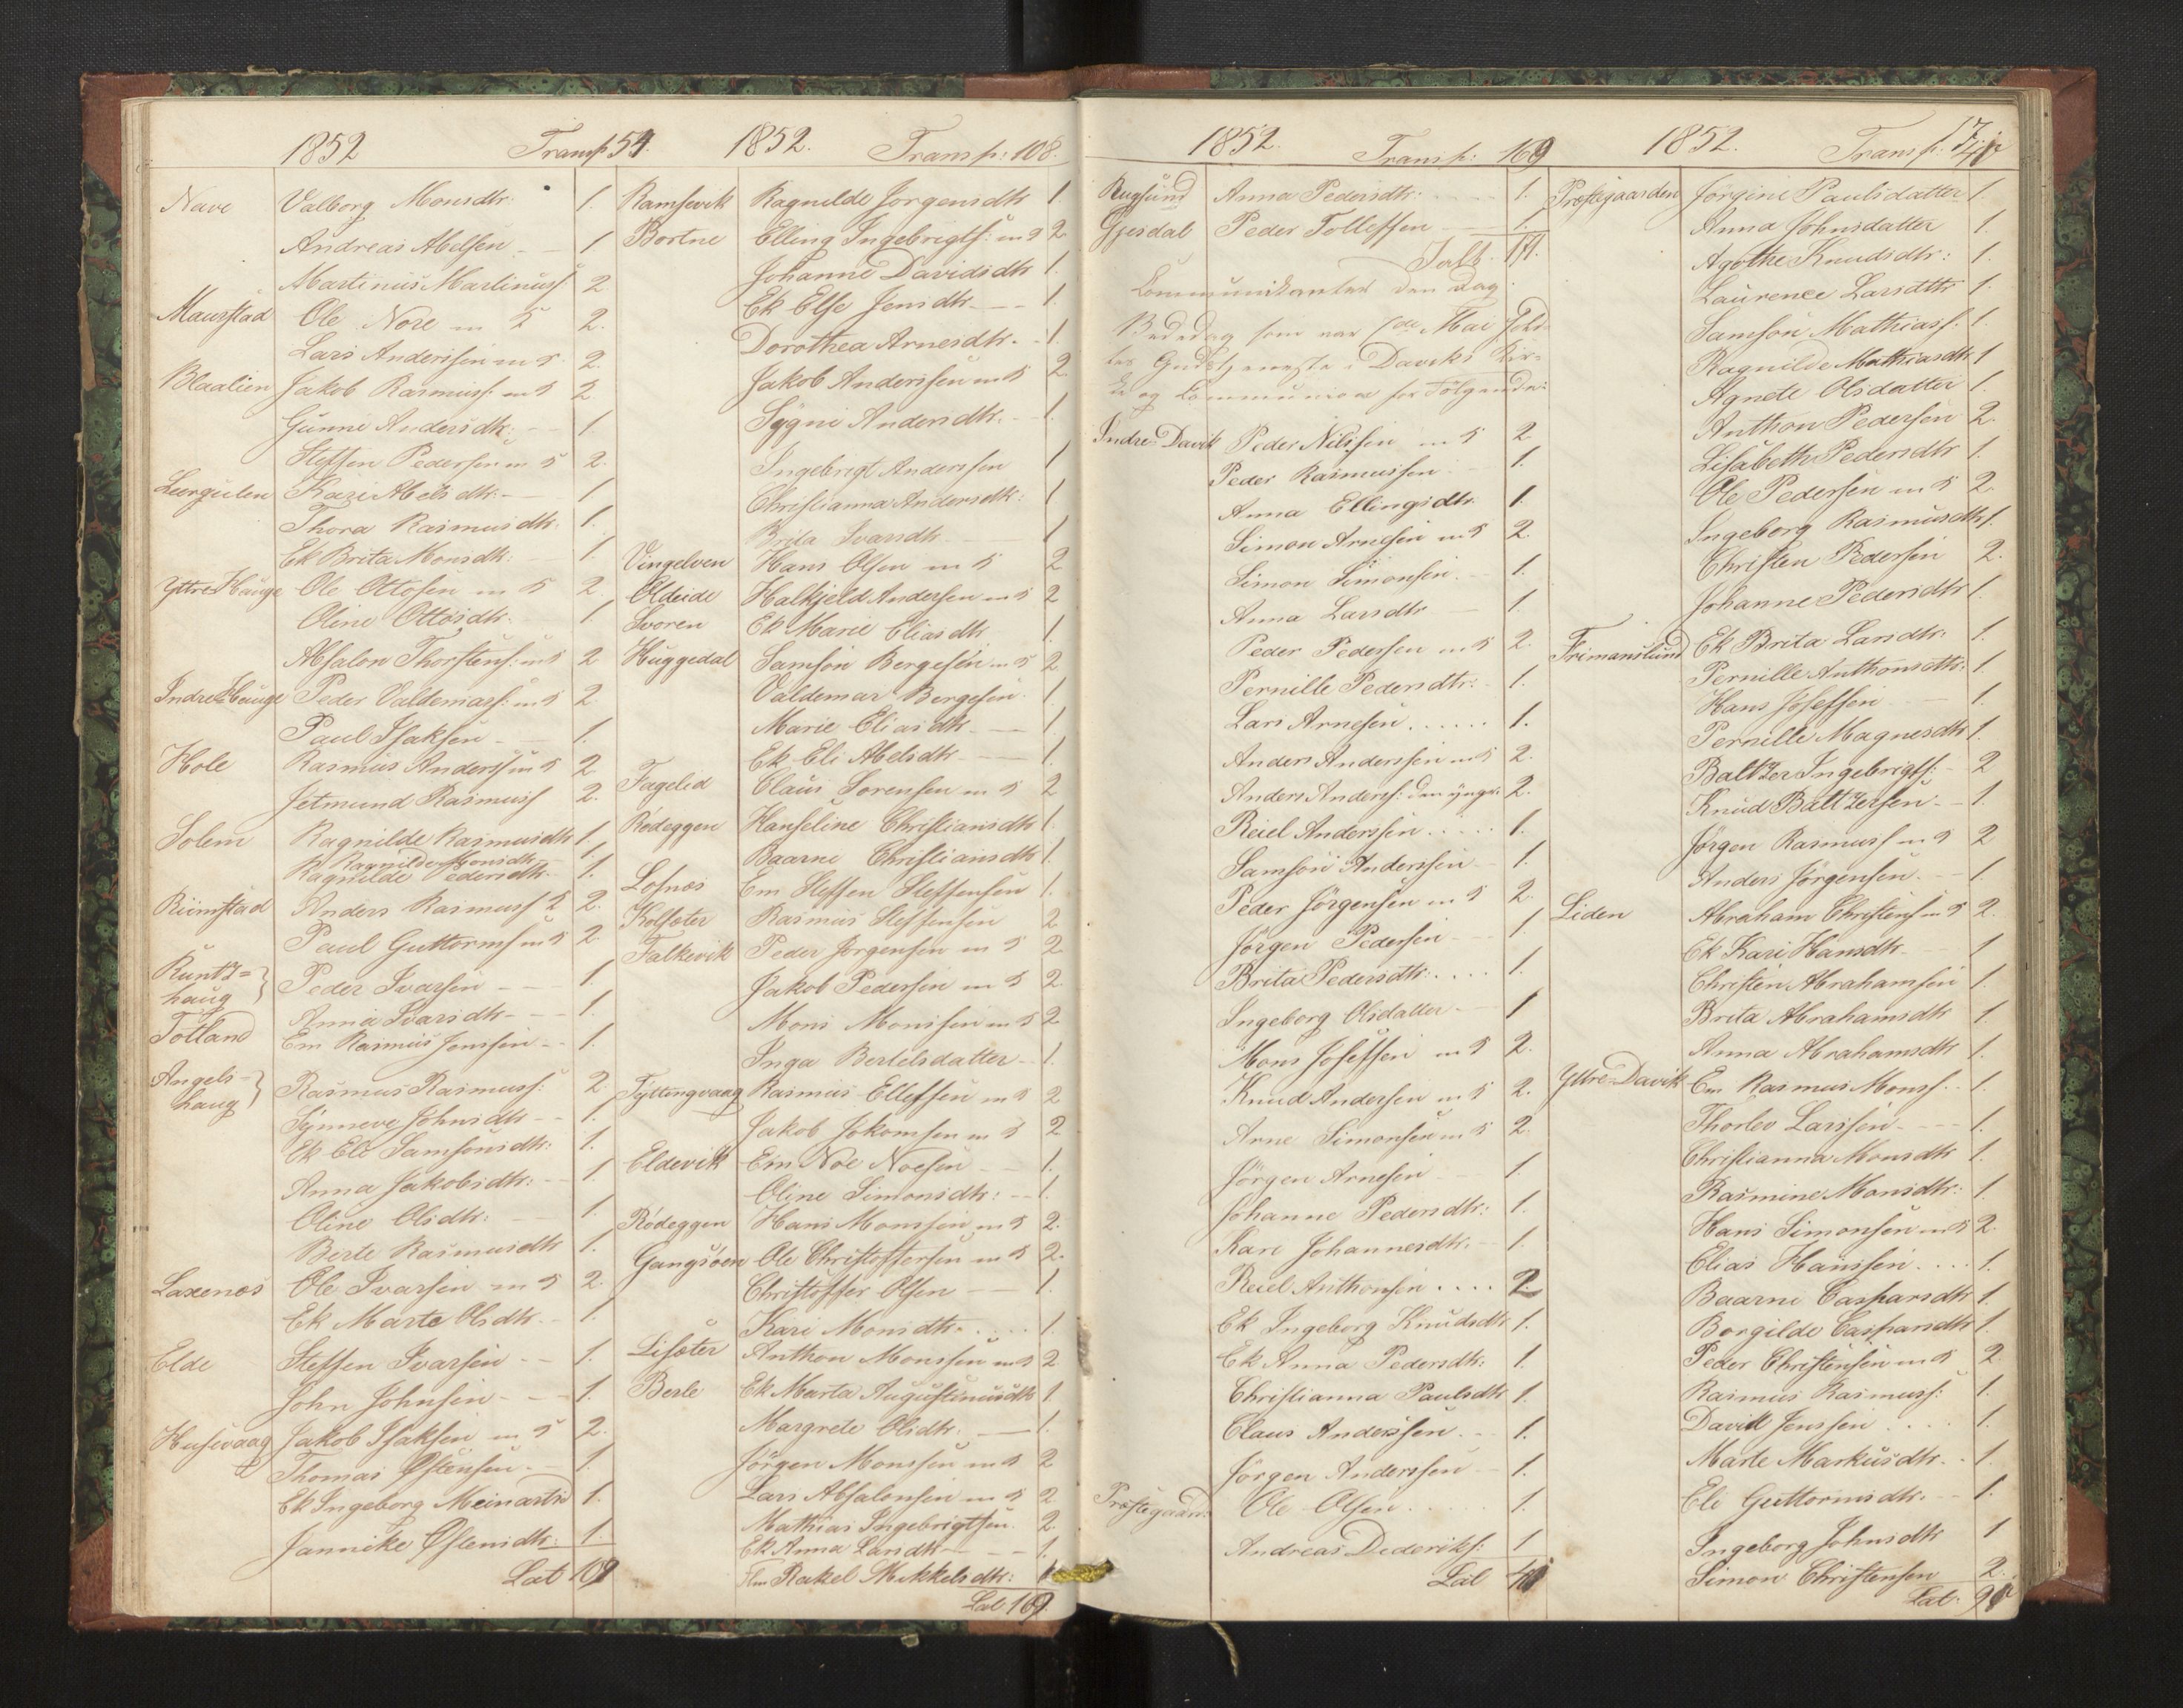 1852 Transp 54.
Nave Valborg Monsdtr: 1.
Andreas Abelsen 1
Martinus Martinuss 2
Maurstad Ole Nore m h 2.
Lars Anderssen m h. 2.
Blaalien Jakob Rasmuss: m h 2
Gunni Andersdtr: 1.
Steffen Pedersen m h 2.
Leergulen Kari Abelsdtr: 1
Thora Rasmusdtr: 1.
Ek Brita Monsdtr: 1.
Yttre Hauge Ole Ottosen m h 2.
Oline Ottosdtr. 1
Absalon Thorstens: m h 2
Indre Hauge Peder Valdemars: m h 2
Paul Isaksen 1.
Hole Rasmus Anderss m h 2
Jetmund Rasmuss 2.
Solem Ragnilde Rasmusdtr 1.
Ragnilde Monsdtr. 1.
Ragnilde Pedersdtr. 1.
Rimstad Anders Rasmuss 2.
Paul Guttorms m h 2
Runtz=
haug } Peder Ivarsen 1.
Anna Ivarsdtr 1.
Totland Em Rasmus Jenssen 1.
Angels-
haug } Rasmus Rasmuss: 2.
Synneve Johnsdtr 1.
Ek Ele Samsonsdtr: 1.
Anna Jakobsdtr: 1
Oline Olsdtr: 1.
Berte Rasmusdtr 1.
Laxenæs Ole Ivarsen m h 2.
Ek Marte Olsdtr. 1.
Elde Steffen Ivarsen 1.
John Johnsen 1.
Husevaag Jakob Isaksen m h 2.
Thomas Østensen 1.
Ek Ingeborg Meinartsd 1.
Jannike Østensdtr: 1.
Lat 109
1852. Transp: 108.
Ramsevik Ragnilde Jørgensdtr 1
Bortne Elling Ingebrigts: m h 2
Johanne Davidsdtr 1.
Ek Else Jensdtr. 1.
Dorothea Arnesdtr. 1.
Jakob Anderssen m h 2
Sygni Andersdtr. 1.
Ingebrigt Anderssen 1
Christianna Andersdtr: 1
Brita Ivarsdtr. 1
Vingelven Hans Olsen m h 2
Oldeide Halkjeld Andersen m h 2
Svoren Ek Marie Eliasdtr 1.
Huggedal Samson Bergesen m h 2
Valdemar Bergesen. 1.
Marie Eliasdtr. 1
Ek Eli Abelsdtr 1.
Fagelid Claus Sørensen m h 2
Rødeggen Hanseline Christiansdtr 1.
Baarne Christiansdtr 1.
Lofnæs Em Steffen Steffensen 1.
Kolsæter Rasmus Steffensen 2
Falkevik Peder Jørgensen m h 2
Jakob Pedersen m h 2.
Mons Monssen m h 2
Inga Bertelsdatter 1.
Tyttingvaag Rasmus Ellefsen m h 2
Jakob Jokomsen m h 2
Eldevik Em Noe Noesen 1.
Oline Simonsdtr: 1.
Rødeggen Hans Monssen m h 2.
Gangsøen Ole Christoffersen m h 2.
Christoffer Olsen 1.
Kari Monsdtr. 1.
Lisæter Anthon Monssen m h 2
Berle Ek Marta Augustinusdtr 1
Margrete Olsdtr. 1.
Jörgen Monssen m h 2
Lars Absalonsen m h 2
Mathias Ingebrigtsen. 2.
Ek Anna Larsdtr 1.
Rakel Mikkelsdtr: 1
Lat 169.
1852. Transp: 169
Rugsund Anna Pedersdtr: 1.
Gjesdal Peder Tollefsen 1.
Ialt 171.
Communikanter den Dag.
Bededag som var 7de Mai Hol-
tes Gudstjeneste i Daviks Kir-
ke og Communion for Følgende:
Indre Davik Peder Nilssen m h 2
Peder Rasmussen 1.
Anna Ellingsdtr. 1.
Simon Arnesen m h 2.
Simon Simonsen. 1.
Anna Larsdtr 1.
Peder Pedersen m h 2.
Pernille Pedersdtr: 1.
Lars Arnesen 1.
Anders Anderssen m h 2.
Anders Anderss: den yngr. 2.
Reiel Anderssen 1.
Samson Anderssen 1.
Peder Jörgensen m h 2.
Jörgen Pedersen 1
Brita Pedersdtr: 1.
Ingeborg Olsdatter 1
Mons Josefsen m h 2.
Knud Andersen m h 2.
Arne Simonsen m h 2.
Jörgen Arnesen 1.
Johanne Pedersdtr: 1.
Kari Johannesdtr. 1.
Reiel Anthonsen 2.
Ek Ingeborg Knudsdtr 1.
Ek Anna Pedersdtr: 1.
Christianna Paulsdtr 1.
Claus Anderssen. 1.
Jörgen Anderssen 1.
Præstegaard: Ole Olsen 1.
Andreas Dideriks: 1
Lat 41
1852. Transp:
Præstegaarden Jørgine Paulsdatter 1.
Anna Johnsdatter 1.
Agothe Knudsdtr: 1.
Laurence Larsdttr 1.
Samson Mathiass: 1.
Ragnilde Mathiasdtr. 1
Agnete Olsdatter 1.
Anthon Pedersen 2.
Lisabeth Pedersdtr 1.
Ole Pedersen m h 2.
Ingeborg Rasmusdtr 1.
Christen Pedersen 2.
Johanne Pedersdtr 1.
Frimanslund Ek Brita Larsdtr. 1.
Pernille Anthonsdtr. 1.
Hans Josefsen 1.
Pernille Magnesdtr 1.
Baltzer Ingebrigts: 2
Knud Baltzersen 1.
Jörgen Rasmuss m h 2
Anders Jörgensen 1.
Liden Abraham Christens m h 2.
Ek Kari Hansdtr. 1
Christen Abrahamsen 1.
Brita Abrahamsdtr 1.
Anna Abrahamsdtr 1.
Yttre Davik Em Rasmus Monss 1.
Thorlev Larssen 1.
Christianna Monsdtr 1.
Rasmine Monsdtr: 1.
Hans Simonsen m h 2.
Elias Hanssen 1.
Baarne Caspersdtr 1.
Borgilde Caspersdtr 1.
Peder Christensen m h 2
Rasmus Rasmuss: 1.
David Jenssen 1.
Marte Markusdtr. 1.
Ele Guttormsdtr. 1.
Ingeborg Johnsdtr 1
Simon Christensen 2.
Lat: